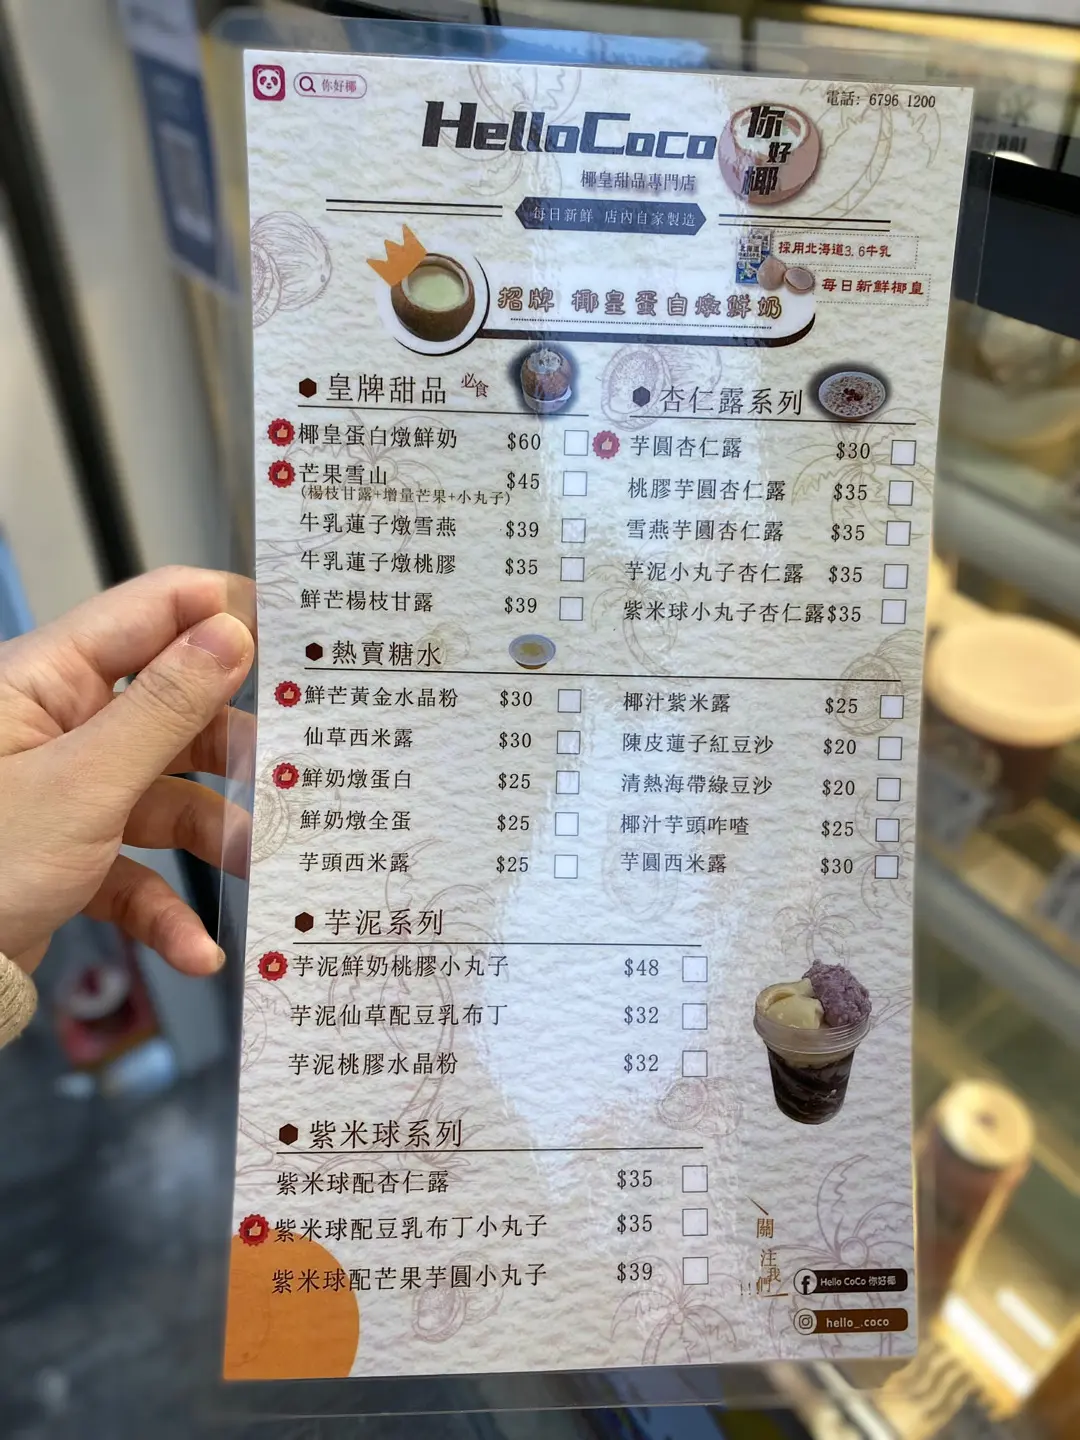 你好椰
電話: 6796 1200
HelloCoCo
你好椰
椰皇甜品專門店
每日新鮮 店內自家製造
採用北海道3.6牛乳
每日新鮮椰皇
招牌 椰皇蛋白燉鮮奶
皇牌甜品 必食
椰皇蛋白燉鮮奶 $60
芒果雪山 $45
(楊枝甘露+增量芒果+小丸子)
牛乳蓮子燉雪燕 $39
牛乳蓮子燉桃膠 $35
鮮芒楊枝甘露 $39
杏仁露系列
芋圓杏仁露 $30
桃膠芋圓杏仁露 $35
雪燕芋圓杏仁露 $35
芋泥小丸子杏仁露 $35
紫米球小丸子杏仁露$35
熱賣糖水
鮮芒黃金水晶粉 $30
仙草西米露 $30
鮮奶燉蛋白 $25
鮮奶燉全蛋 $25
芋頭西米露 $25
椰汁紫米露 $25
陳皮蓮子紅豆沙 $20
清熱海帶綠豆沙 $20
椰汁芋頭咋喳 $25
芋圓西米露 $30
芋泥系列
芋泥鮮奶桃膠小丸子 $48
芋泥仙草配豆乳布丁 $32
芋泥桃膠水晶粉 $32
紫米球系列
紫米球配杏仁露 $35
紫米球配豆乳布丁小丸子 $35
紫米球配芒果芋圓小丸子 $39
關注我們
Hello CoCo 你好椰
hello_.coco